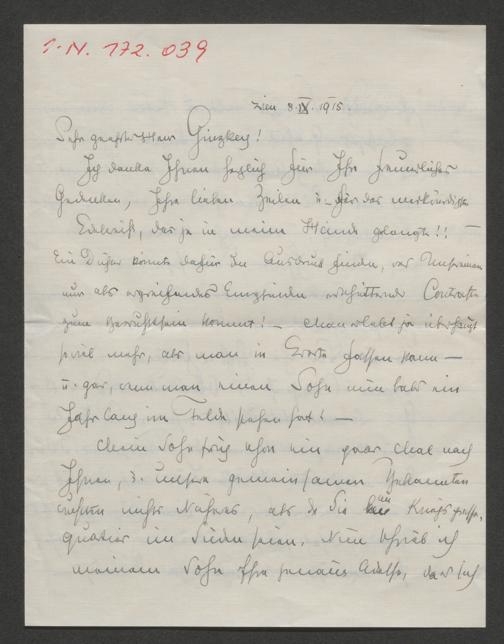 I.N. 172.039
Wien 8.IX.1915.
Sehr geehrter Herr Ginzkey!
Ich danke Ihnen herzlich für Ihr freundliches
Gedenken, Ihre lieben Zeilen u. für das merkwürdige
Edelweiß, das je in meine Hände gelangte!! —
Ein Dichter könnte dafür den Ausdruck finden, was Unsereinem
nur als ergreifendes Empfinden erschütternder Contraste
zum Bewußtsein kommt! — Man erlebt ja überhaupt
so viel mehr, als man in Worte fassen kann —
u. gar, wenn man einen Sohn nun bald ein
Jahr lang im Felde stehen hat! —
Mein Sohn frug schon ein paar Mal nach
Ihnen, d. unsere gemeinsamen Bekannten
wußten nichts Näheres, als daß Sie im Kriegspresse-
quartier im Süden seien. Nun schrieb ich
meinem Sohn Ihre genaue Adresse, da er sich